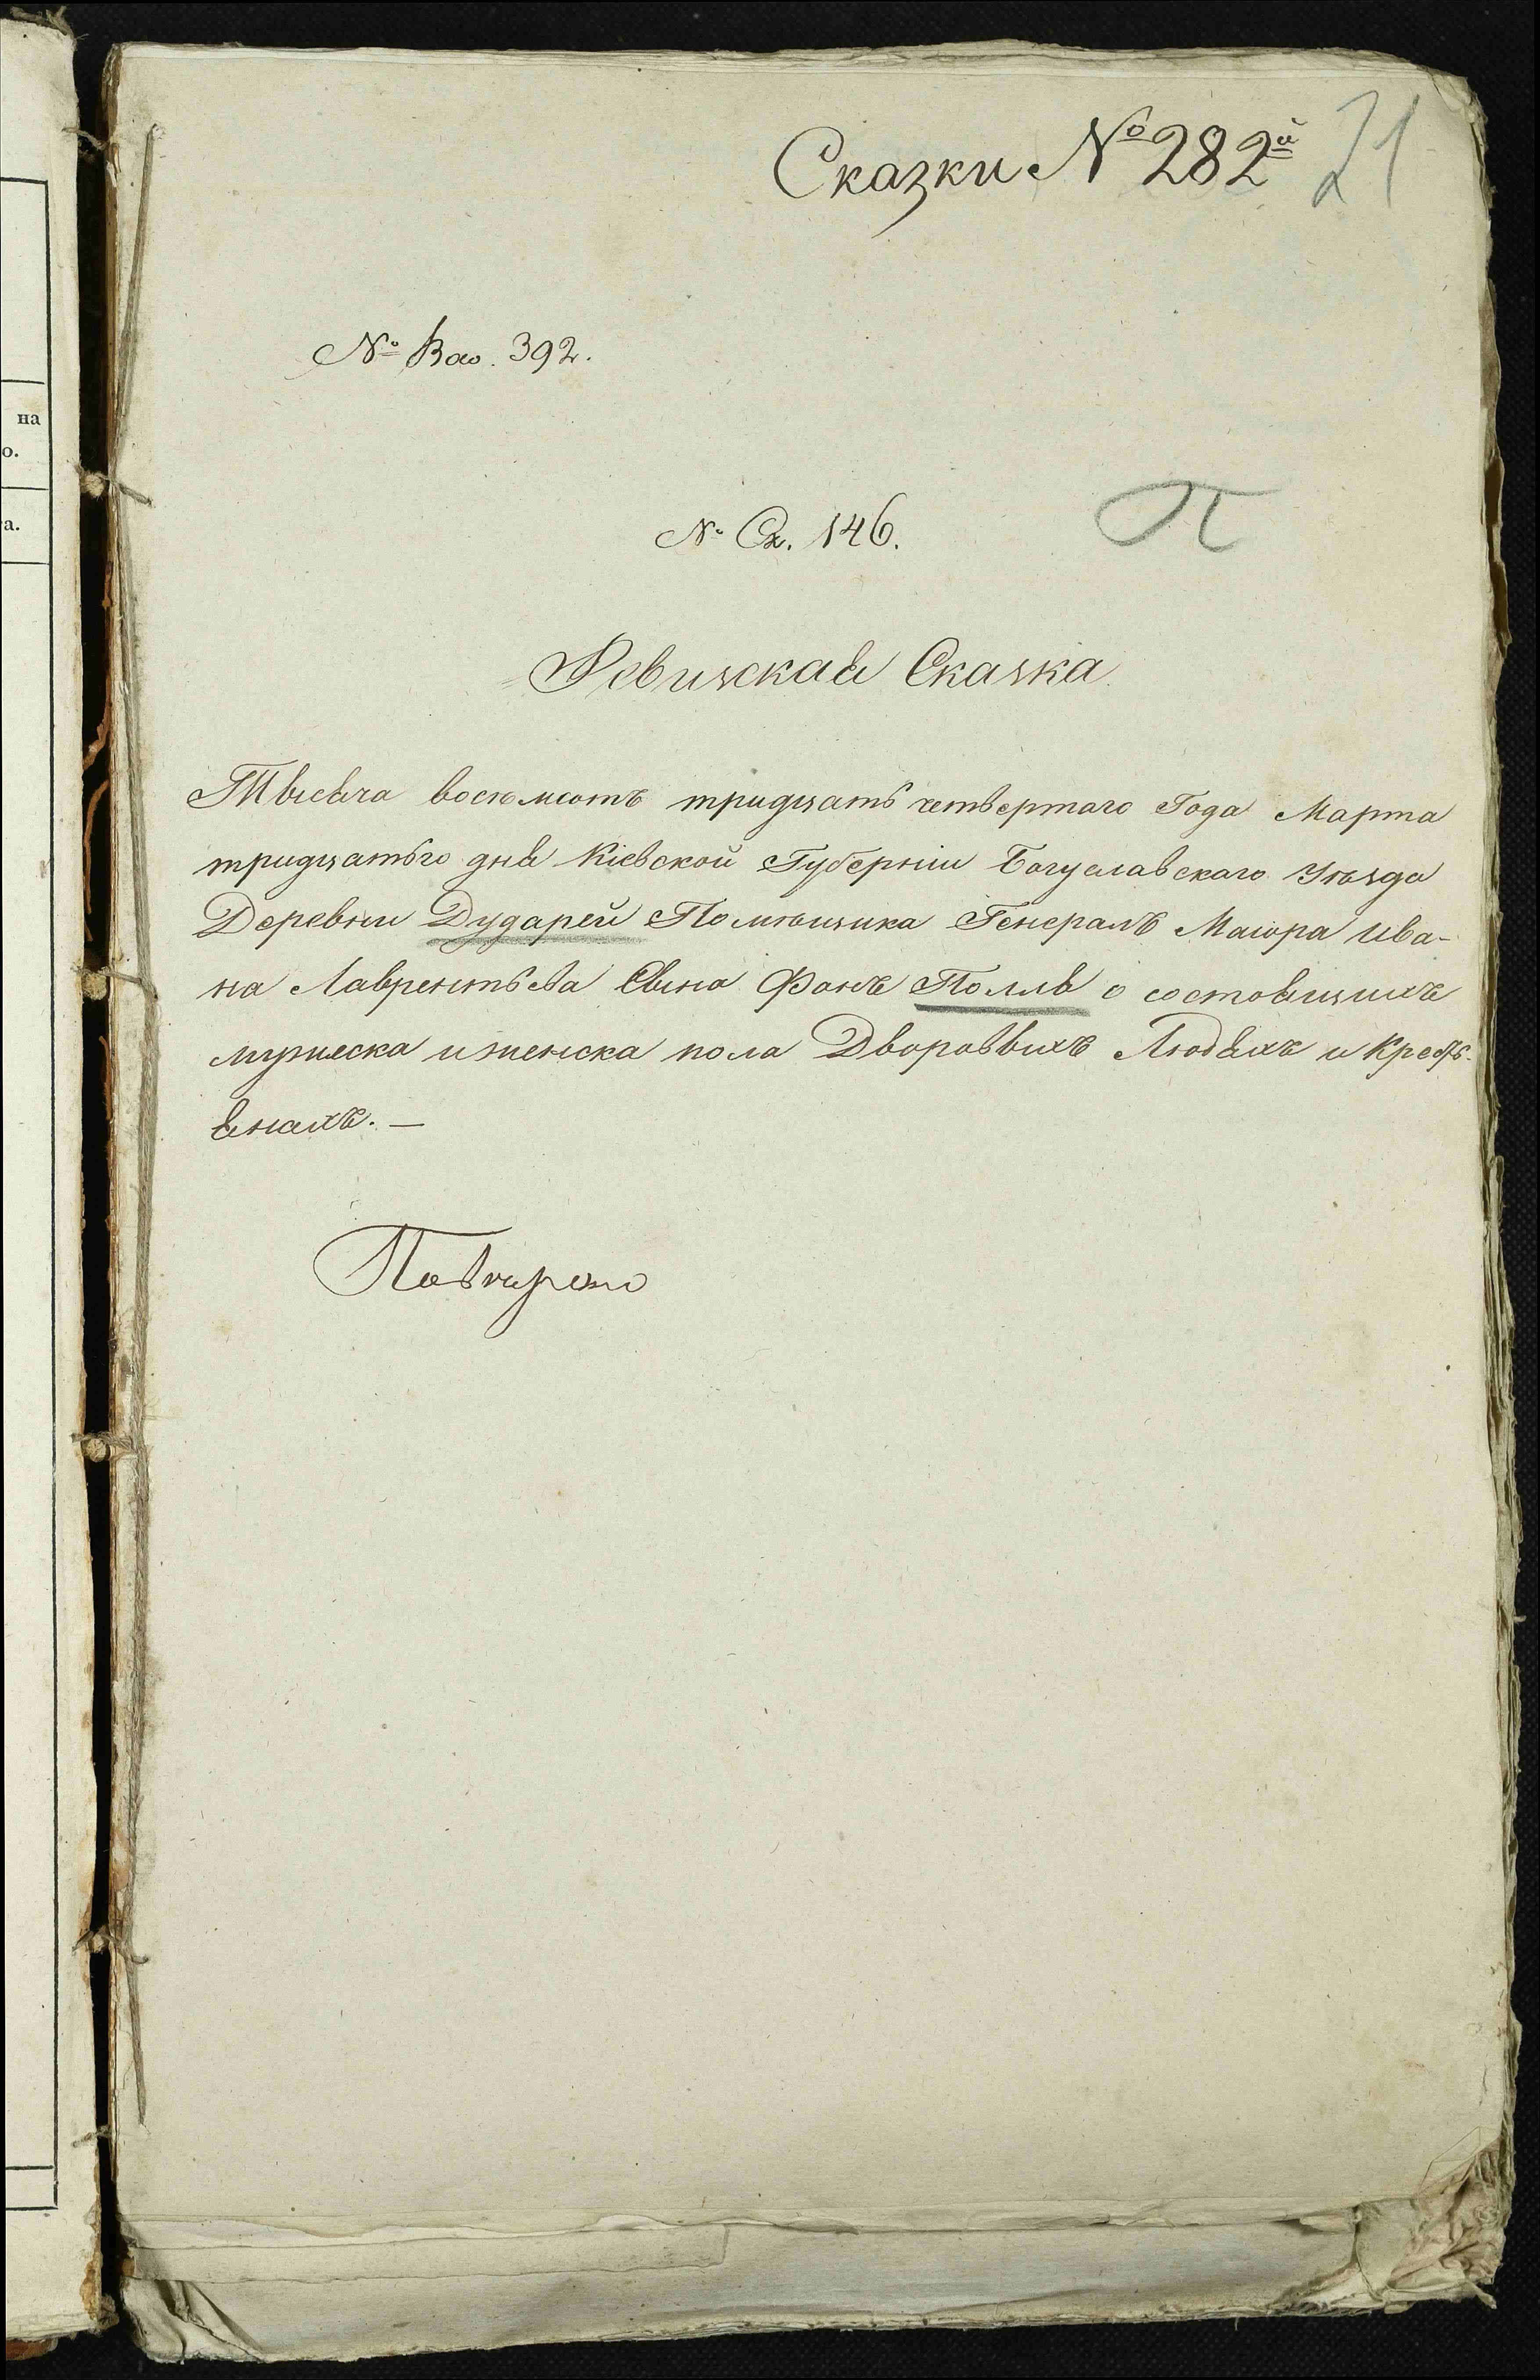 Сказки № 282й 21
на
о.
№ 392.
а.
№ Ск. 146.
П
Ревизская Сказка
Тысяча восемсотъ тридцать четвертаго Года Марта
тридцатьго дня Кіевской Губерніи Богуславскаго Уѣзда
Деревни Дударей Помѣщика Генералъ Маіора Ива-
на Лаврентьева Сына Фонъ Полля о состоящихъ
мужеска и женска пола Дворовыхъ Людяхъ и Кресть-
янахъ. —